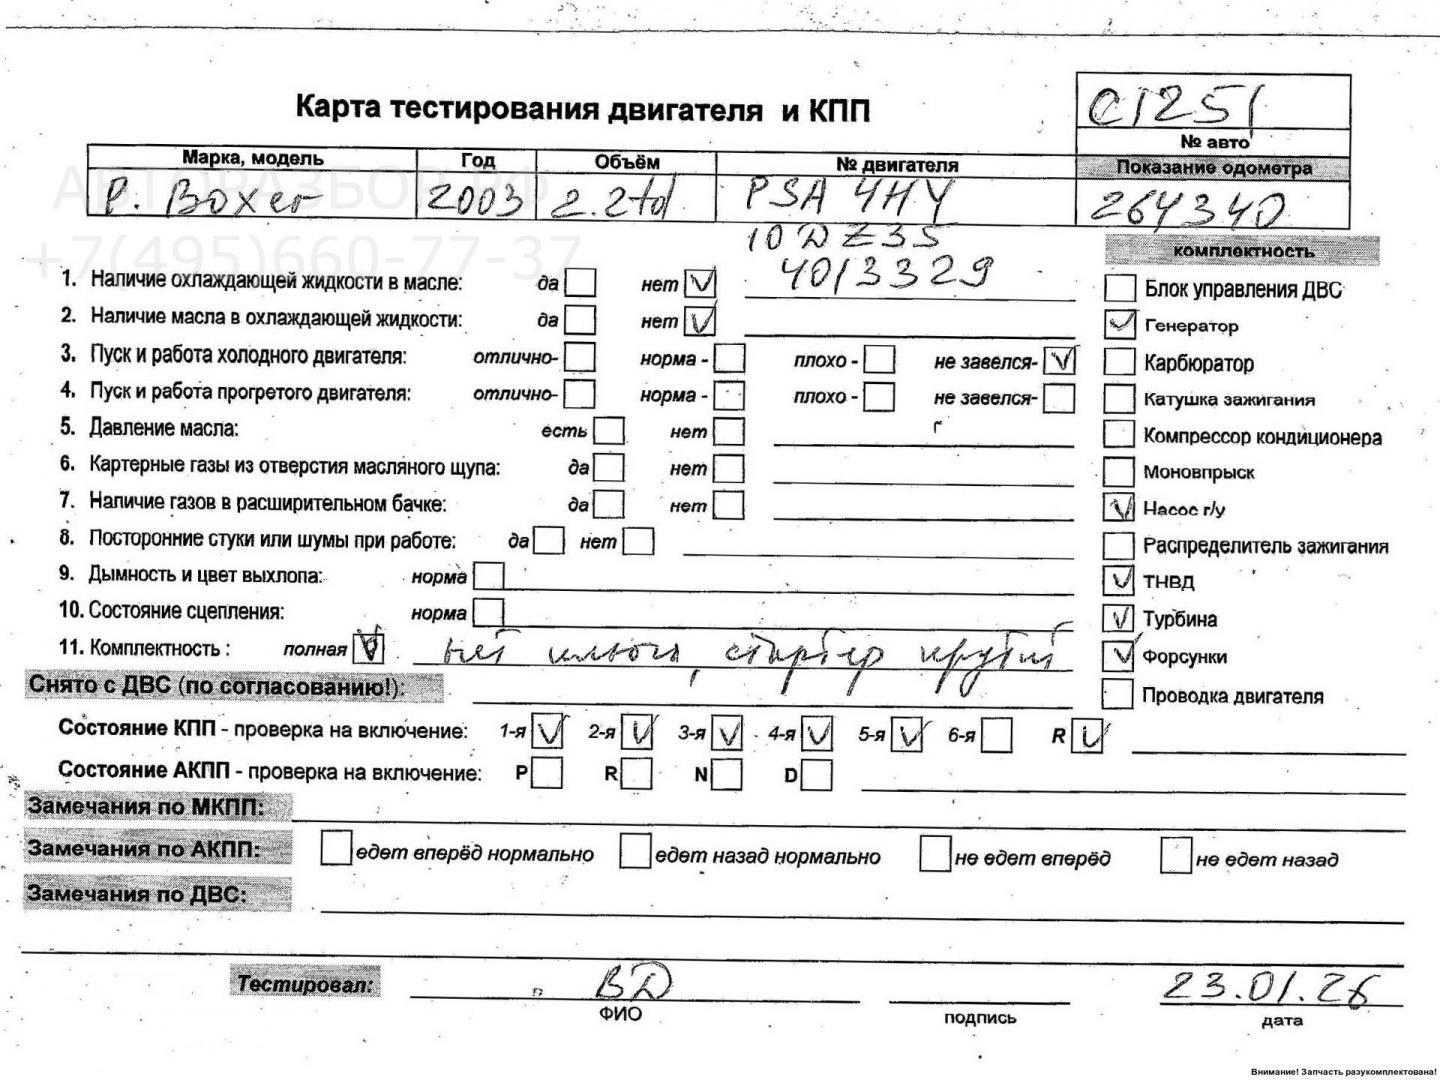 Карта тестирования двигателя и КПП
C1251
№ авто
Марка, модель Год Объём № двигателя Показание одометра
АВТОРАЗБОР.РФ
P. Boxer 2003 2.2td PSA 4HY 264340
+7(495)660-77-37
10DZ35
4013329
комплектность
1. Наличие охлаждающей жидкости в масле: да нет
2. Наличие масла в охлаждающей жидкости: да нет
3. Пуск и работа холодного двигателя: отлично- норма - плохо - не завелся-
4. Пуск и работа прогретого двигателя: отлично- норма - плохо - не завелся-
5. Давление масла: есть нет
6. Картерные газы из отверстия масляного щупа: да нет
7. Наличие газов в расширительном бачке: да нет
8. Посторонние стуки или шумы при работе: да нет
9. Дымность и цвет выхлопа: норма
10. Состояние сцепления: норма
11. Комплектность : полная нет ключа, стартер крутит
Блок управления ДВС
Генератор
Карбюратор
Катушка зажигания
Компрессор кондиционера
Моновпрыск
Насос г/у
Распределитель зажигания
ТНВД
Турбина
Форсунки
Проводка двигателя
Снято с ДВС (по согласованию!):
Состояние КПП - проверка на включение: 1-я 2-я 3-я 4-я 5-я 6-я R
Состояние АКПП - проверка на включение: P R N D
Замечания по МКПП:
Замечания по АКПП: едет вперёд нормально едет назад нормально не едет вперёд не едет назад
Замечания по ДВС:
Тестировал: ВД 23.01.26
ФИО подпись дата
Внимание! Запчасть разукомплектована!